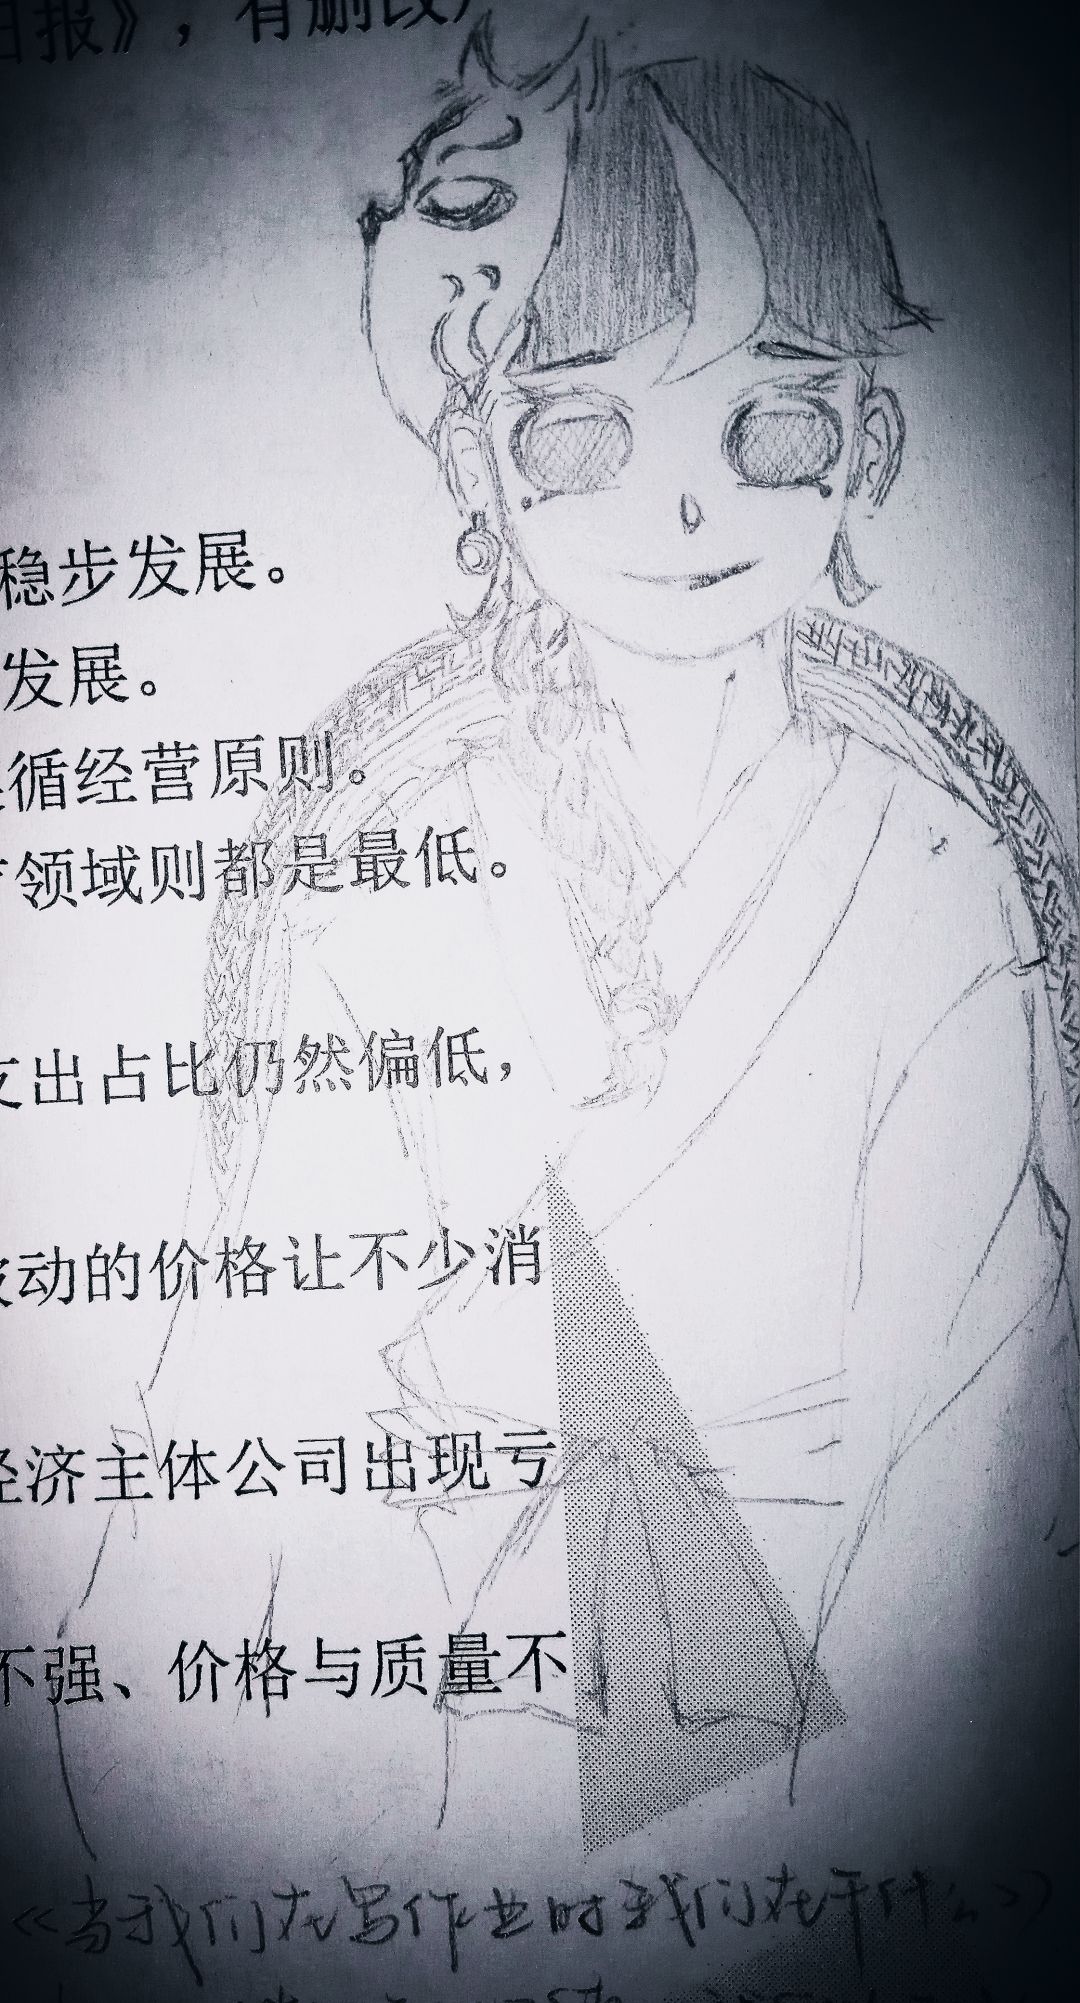 日报》，有删改）
稳步发展。
发展。
循经营原则。
领域则都是最低。
支出占比仍然偏低，
波动的价格让不少消
经济主体公司出现亏
不强、价格与质量不
《当我们在写作业时我们在干什么》